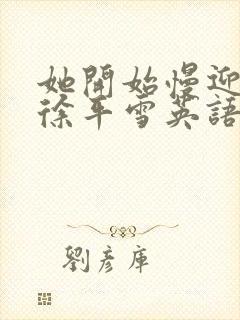 她開始慢迎
徐平雪英語
劉彥庫